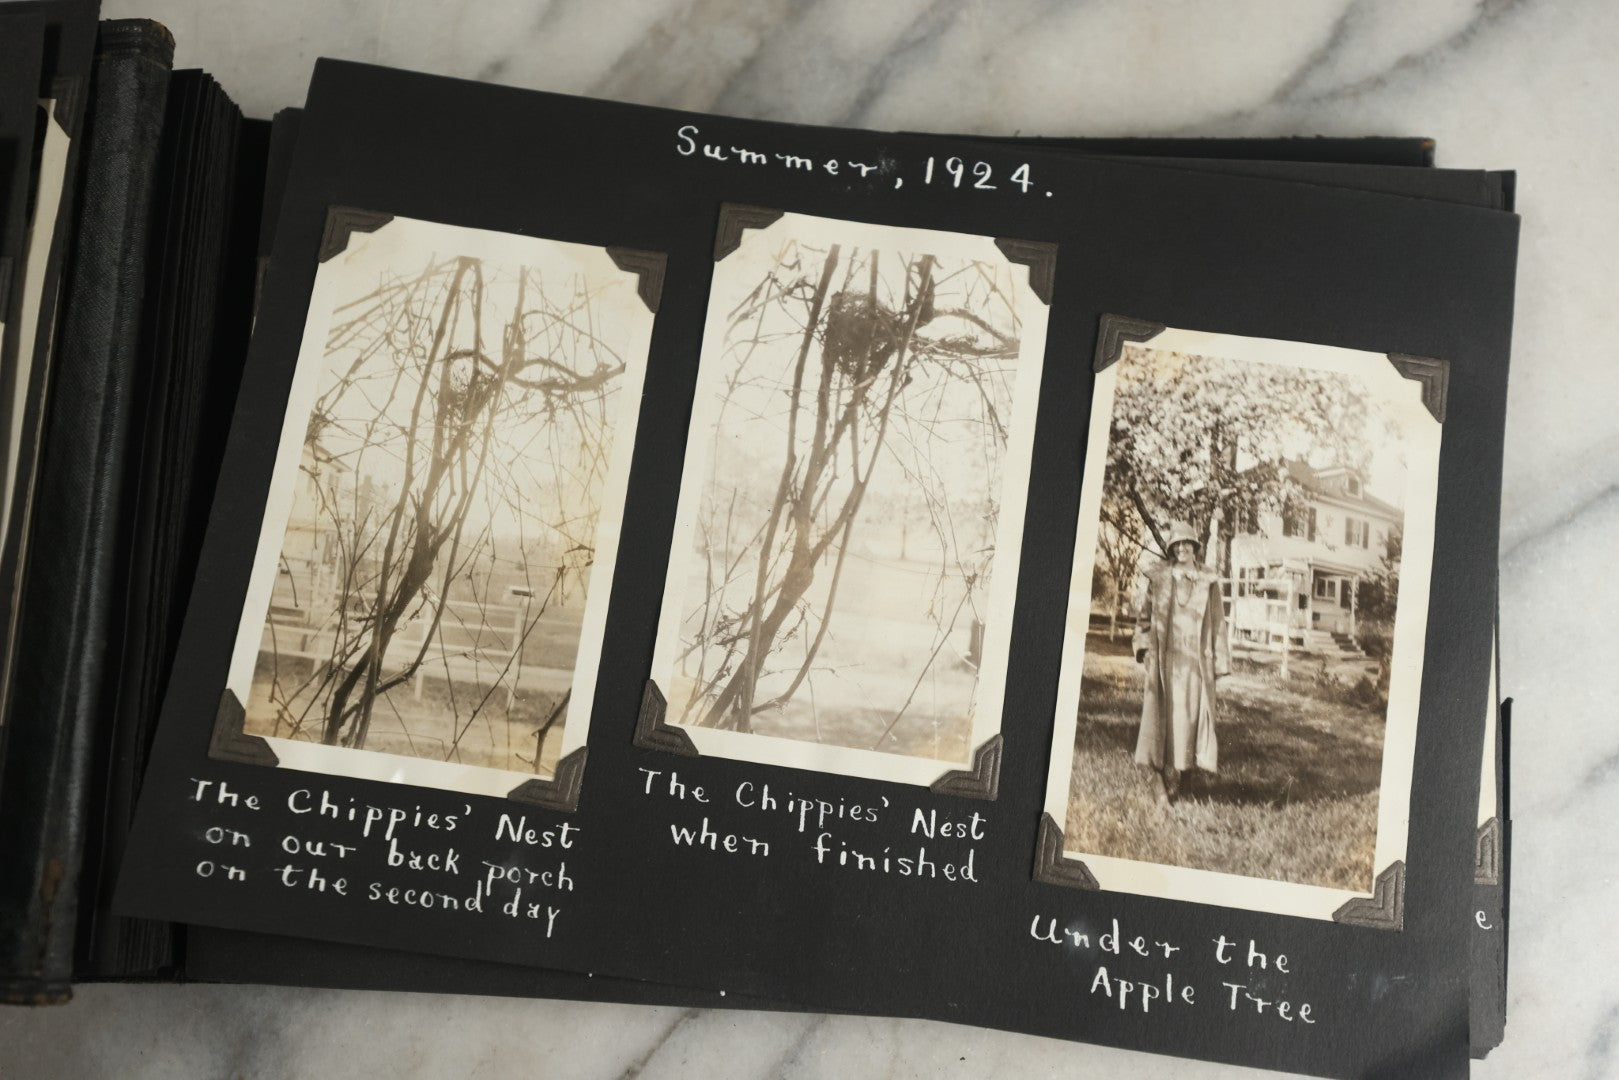 Summer, 1924.
The Chippies' Nest
on our back porch
on the second day
The Chippies' Nest
when finished
Under the
Apple Tree
e